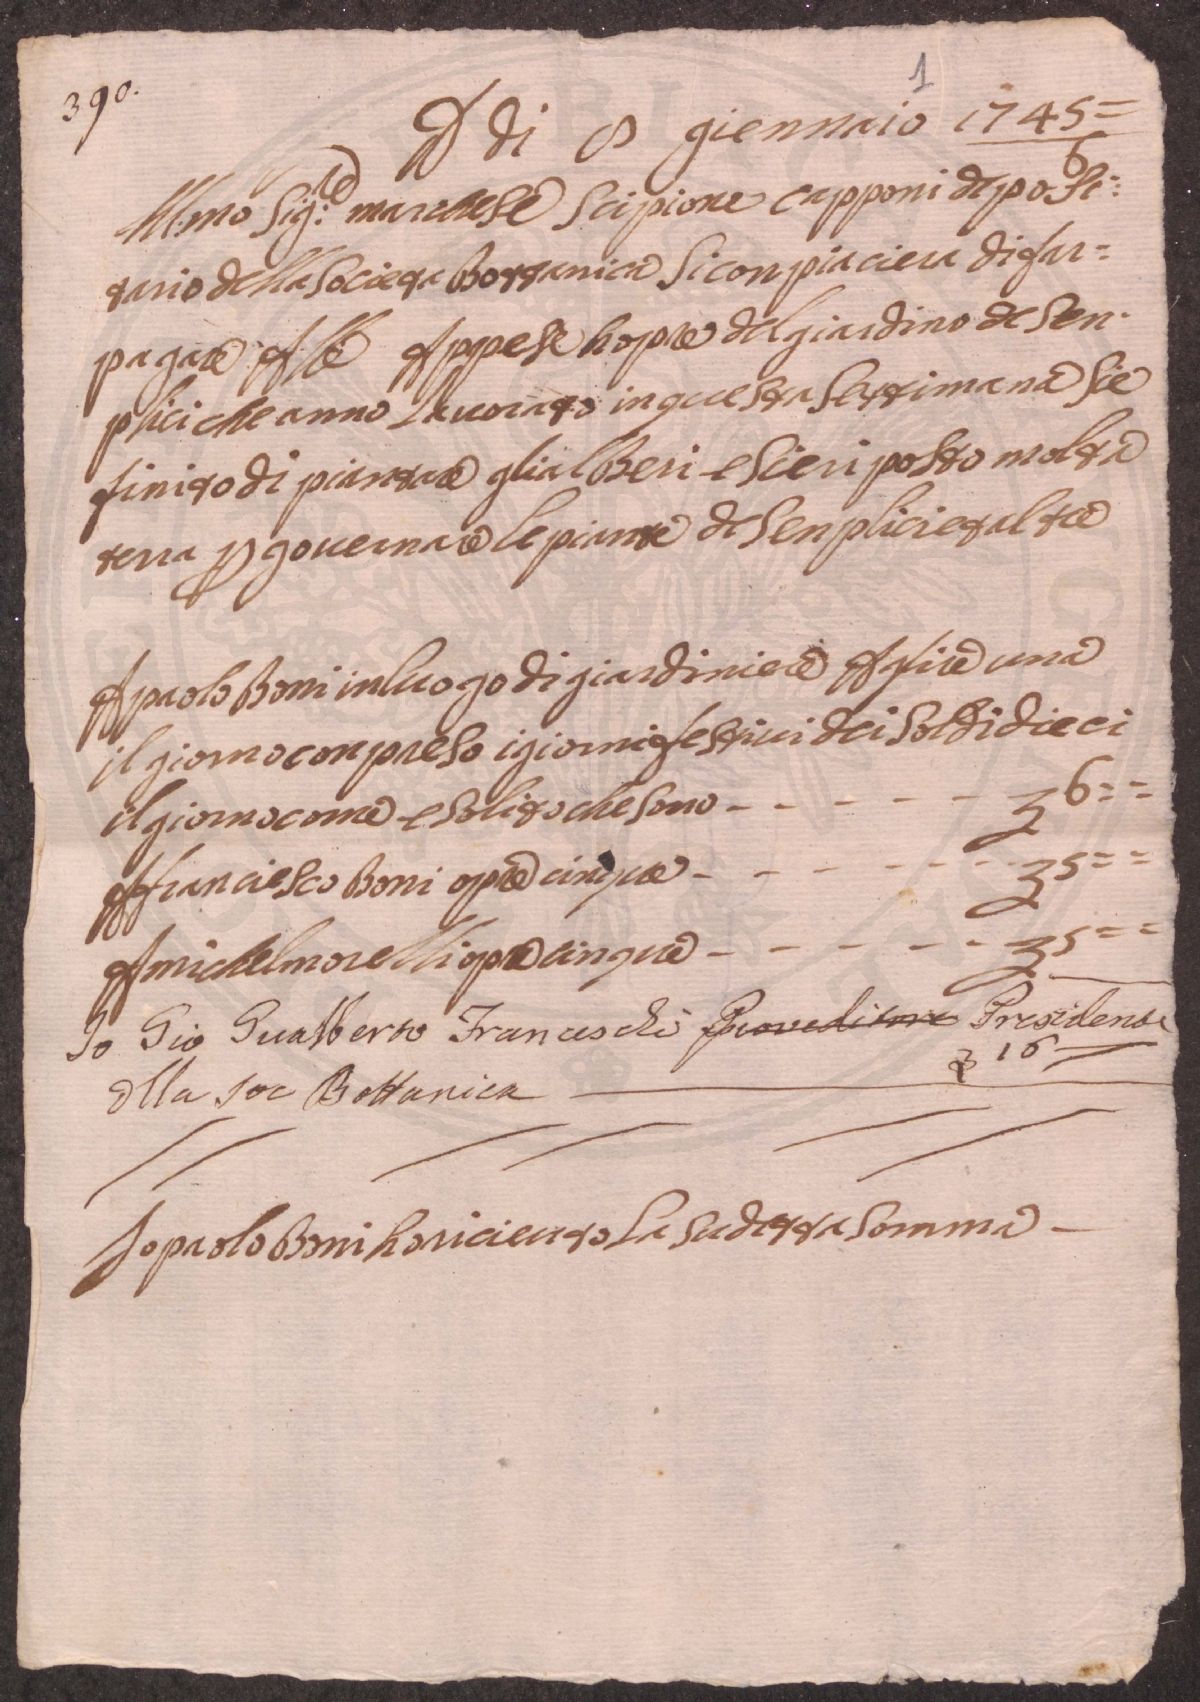 390.
1
A di 8 giennaio 1745=
6
Ill:mo Sig:re marchese Scipione capponi deposi:
tario della Sociieta Bottanica Si conpiaciera di far=
pagare Alle Appese hopre del giardino de Sen-
plici che anno Lauorato in questa Settimana Sie
finito di piantare gli alberi e Sieri posto molta
terra p gouernare le piante de Senplici et altre
A paolo Boni in luogo di giardiniere A lire una
il giorno conpreso i giorni festiui dei Soldi dieci
il giorno come e Solito che Sono - - - - - - £ 6==
A franciesco Boni opre cinque - - - - - - £ 5==
A michel morelli opre cinque - - - - - £ 5==
Io Gio Gualberto Franceschi Proveditore Presidente
£ 16
della Soc Bottanica
Io paolo Boni ho riceuuto La Sudetta Somma